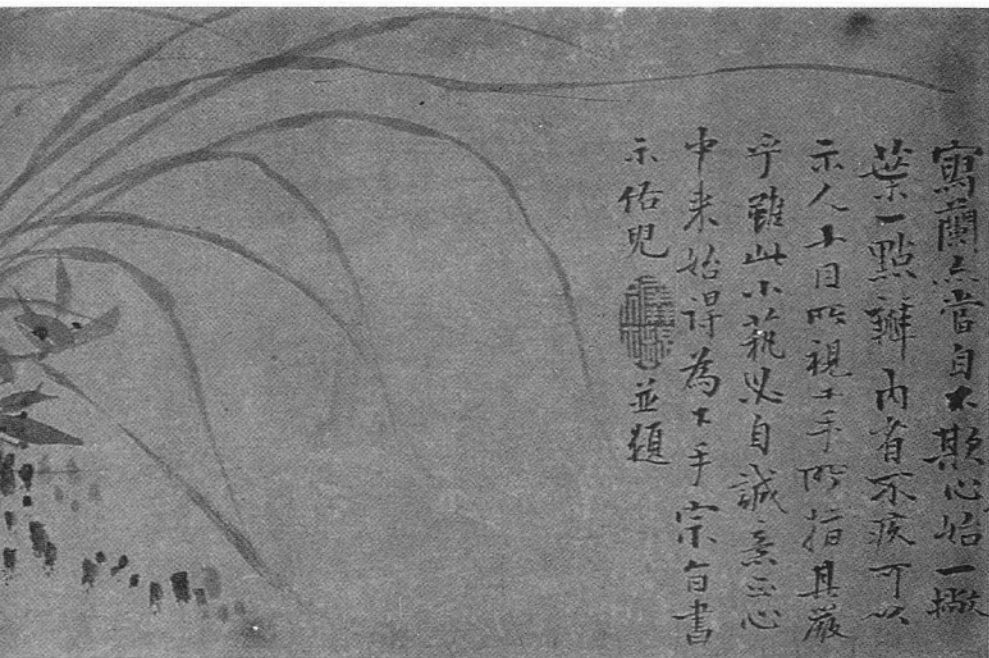 寫蘭亦當自不欺心始一撇
葉一點瓣內省不疚可以
示人十目所視十手所指其嚴
乎雖此小藝必自誠意正心
中來始得為下手宗旨書
示佑兒 並題